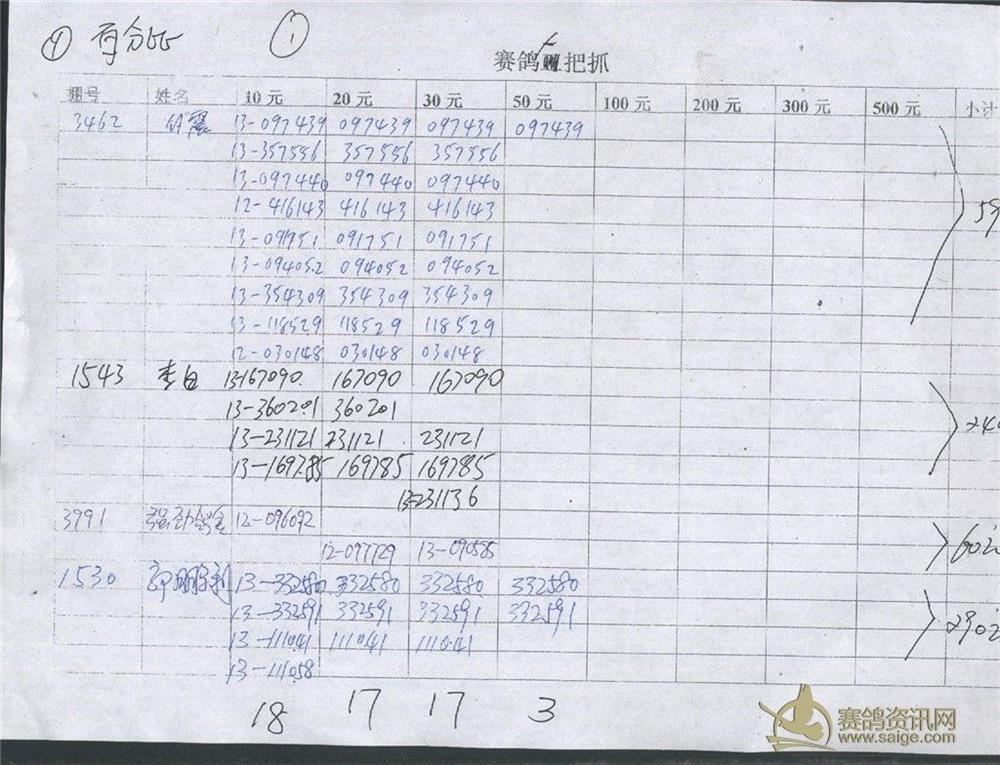 ④ 百分比 ①
赛鸽 把抓
棚号 姓名 10 元 20 元 30 元 50 元 100 元 200 元 300 元 500 元 小计
3462 震 13-097439 097439 097439 097439
13-357556 357556 357556
13-097440 097440 097440
12-416143 416143 416143 59
13-091751 091751 091751
13-094052 094052 094052
13-354309 354309 354309
13-118529 118529 118529
12-030148 030148 030148
1543 李白 13-167090 167090 167090
13-360201 360201
13-231121 231121 231121 240
13-169785 169785 169785
13-231136
3991 12-096092
12-097729 13-090585 60元
1530 邵明利 13-332580 332580 332580 332580
13-332591 332591 332591 332591
13-111041 111041 111041 290元
13-111058
18 17 17 3
赛鸽资讯网
www.saige.com